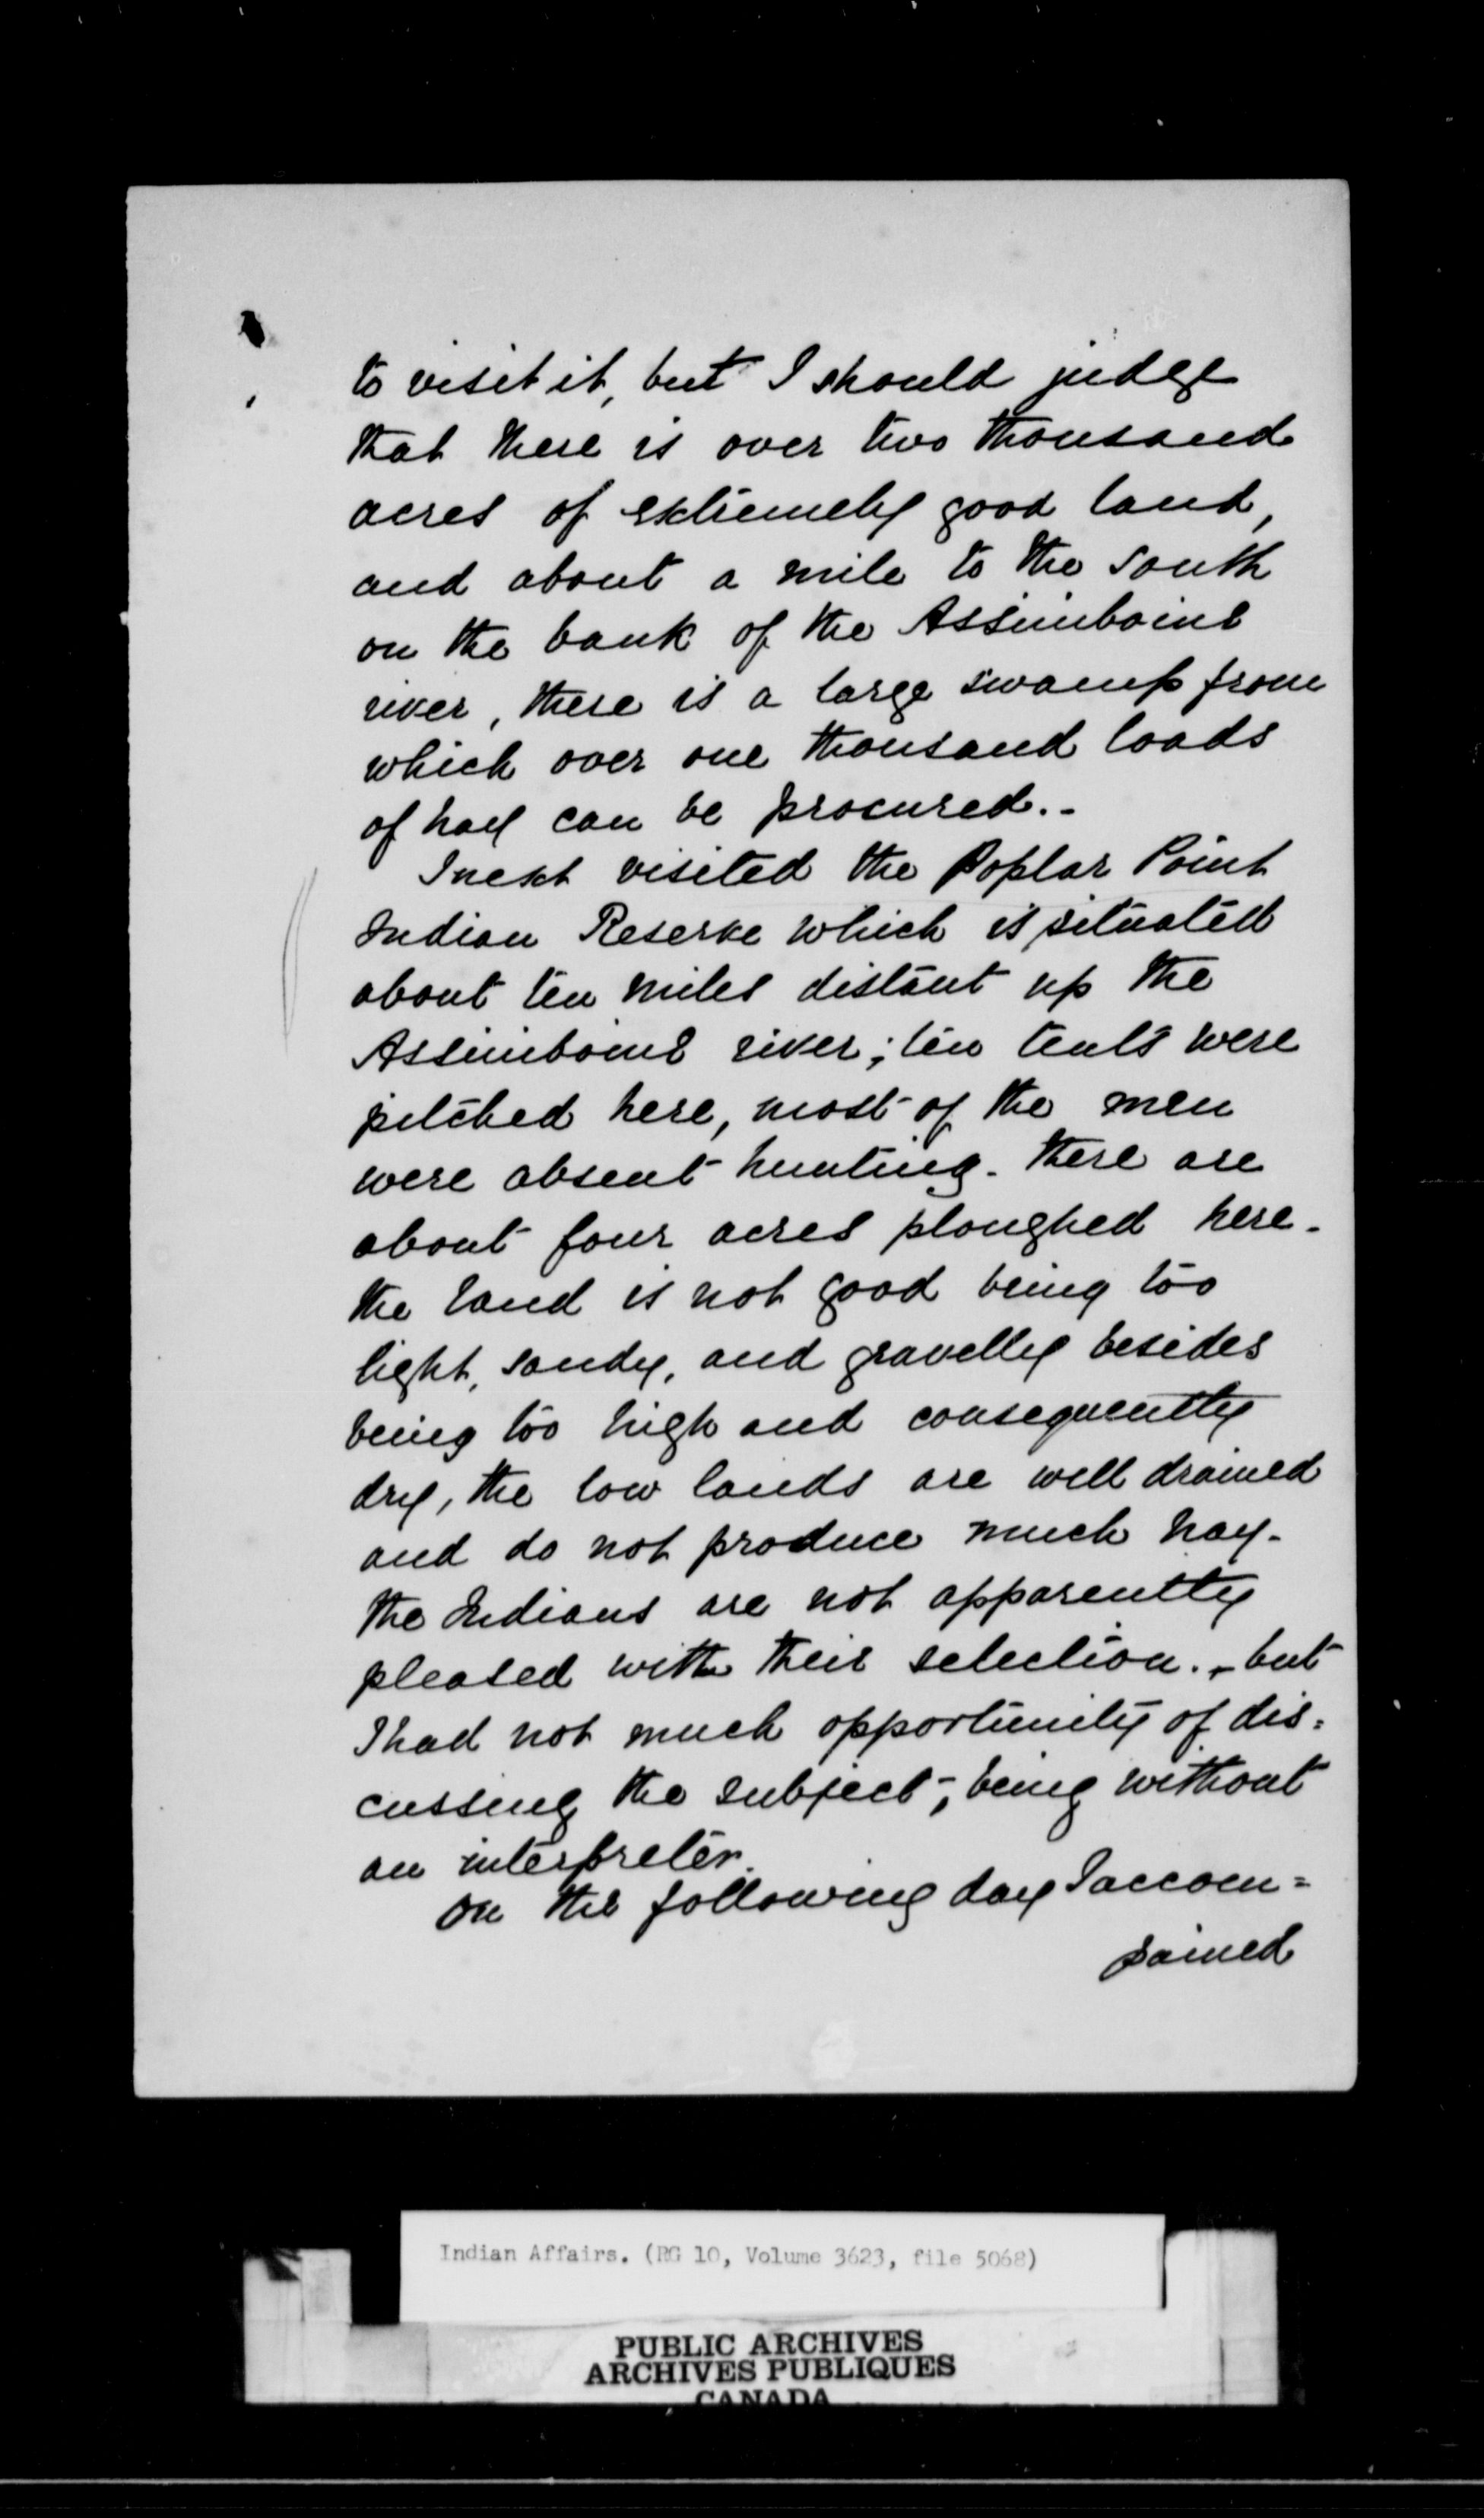 to visit it, but I should judge
that there is over two thousand
acres of extremely good land,
and about a mile to the south
on the bank of the Assiniboine
river, there is a large swamp from
which over one thousand loads
of hay can be procured.-
I next visited the Poplar Point
Indian Reserve which is situated
about ten miles distant up the
Assiniboine river; ten tents were
pitched here, most of the men
were absent hunting. There are
about four acres ploughed here.
the land is not good being too
light, sandy, and gravelly besides
being too high and consequently
dry, the low lands are well drained
and do not produce much hay.
the Indians are not apparently
pleased with their selection. - but
I had not much opportunity of dis=
cussing the subject, being without
an interpreter.
On the following day I accom=
panied
Indian Affairs. (RG 10, Volume 3623, file 5068)
PUBLIC ARCHIVES
ARCHIVES PUBLIQUES
CANADA